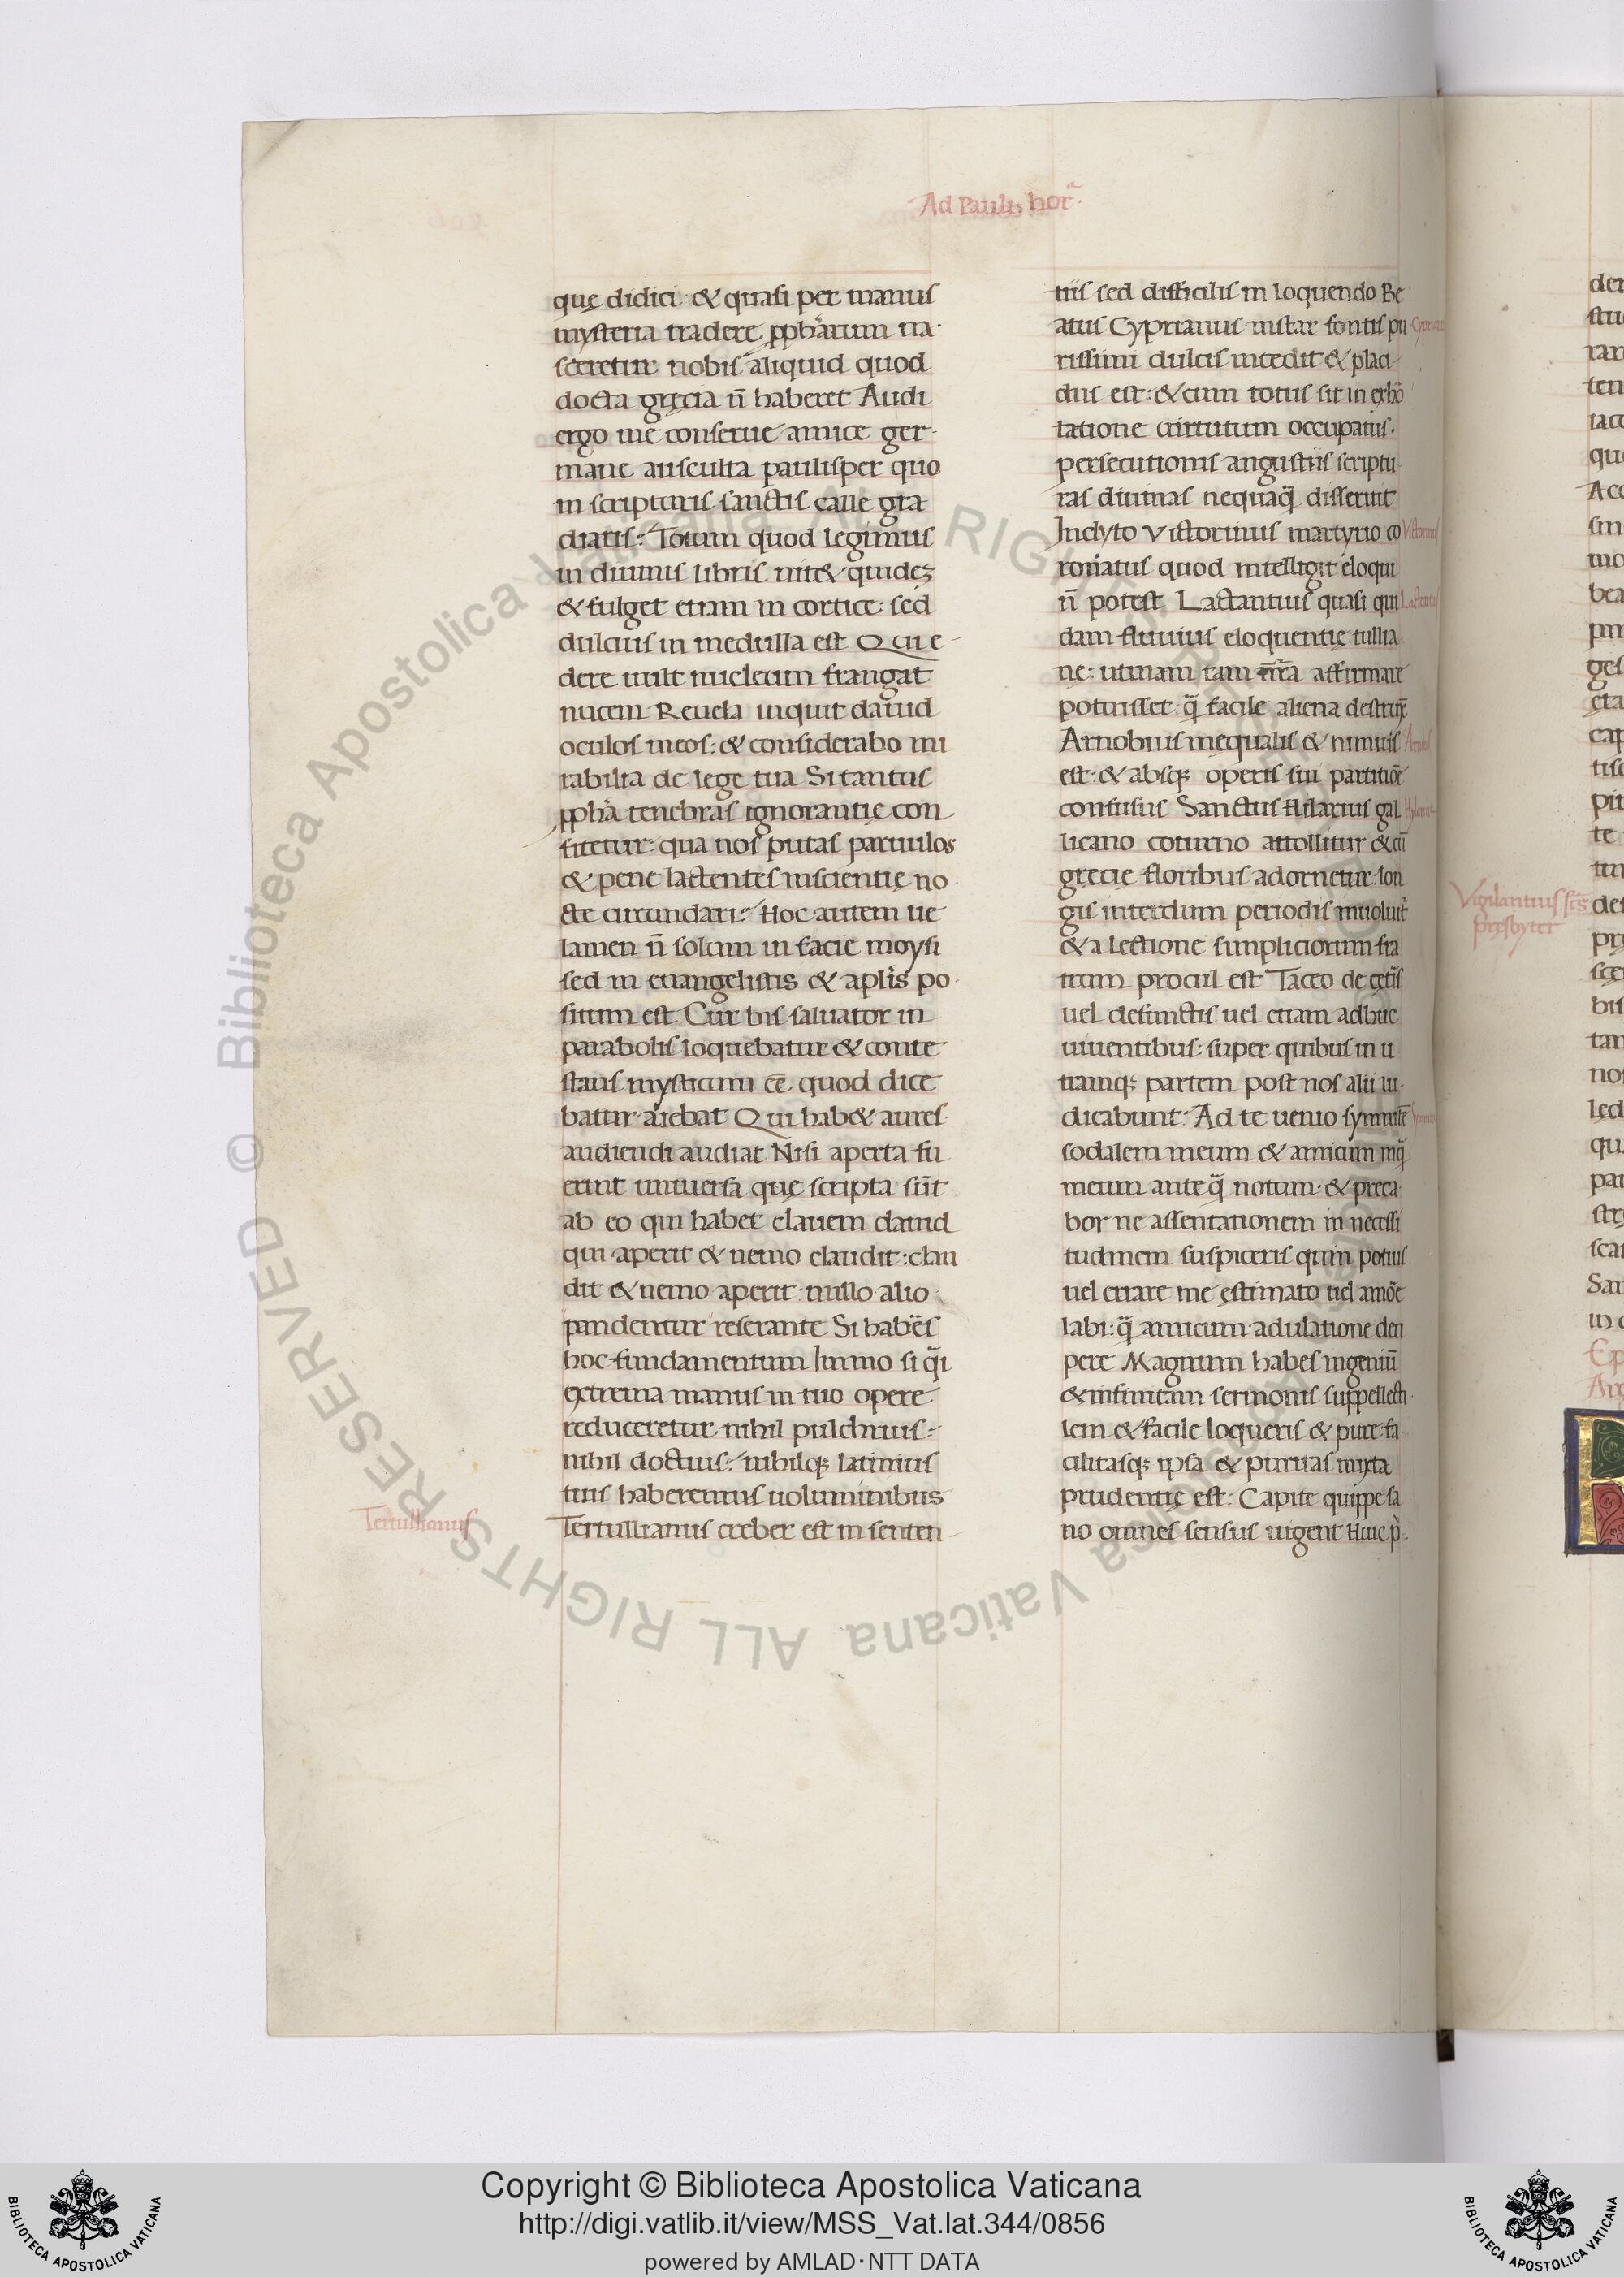 Ad Pauli; horᵃ.
quę didici· & quasi per manus
mysteria tradere ꝓphꝫarum na·
sceretur nobis aliquid quod
docta gręcia n̄ haberet Audi
ergo me conserue amice ger-
mane ausculta paulisper quo
in scripturis sanctis calle gra
diaris: Totum quod legimus
in diuinis libris nit& quidez
& fulget etiam in cortice: sed
dulcius in medulla est Qui e-
dere uult nucleum frangat
nucem Reuela inquit dauid
oculos meos: & considerabo mi
rabilia de lege tua Si tantus
ꝓpha tenebras ignorantię con
fitetur: qua nos putas paruulos
& pene lactentes inscientię no
cte circundari: Hoc autem ue
lamen n̄ solum in facie moysi
sed in euangelistis & apl'is po·
situm est Cur bis saluator in
parabolis loquebatur & conte
stans mysticum eē quod dice
batur aiebat Qui hab& aures
audiendi audiat Nisi aperta fu
erint uniuersa quę scripta sūt
ab eo qui habet clauem dauid
qui aperit & nemo claudit: clau
dit & nemo aperit: nullo alio
pandentur reserante Si hab̄es
hoc fundamentum Immo si q̄i
extrema manus in tuo opere
reduceretur nihil pulchrius:
nihil doctius: nihilq; latinius
tuis haberemus uoluminibus
Tertullianus creber est in senten-
Tertullianus
tiis sed difficilis in loquendo Be
atus Cyprianus instar fontis pu
rissimi dulcis incedit & placi
dus est: & cum totus sit in exho
tatione uirtutum occupatus·
persecutionis angustiis scriptu
ras diuinas nequaq̄ disseruit
Inclyto Victorinus martyrio co
ronatus quod intelligit eloqui
n̄ potest Lactantius quasi qui
dam fluuius eloquentię tullia
nę: utinam tam nr̄a affirmare
potuisset q̄ facile aliena destrux̄
Arnobius inęqualis & nimius
est: & absq; operis sui partitiōe
confusus Sanctus Hilarius gal
licano coturno attollitur & cū
gręcię floribus adornetur: lon
gis interdum periodis inuoluit᷑
& a lectione simpliciorum fra
trum procul est Taceo de cęt̄is
uel defunctis uel etiam adhuc
uiuentibus: super quibus in u
tramq; partem post nos alii iu·
dicabunt: Ad te uenio symmist̄
sodalem meum & amicum inq̄
meum ante q̄ notum & preca
bor ne assentationem in necessi
tudinem suspiceris quin potius
uel errare me ęstimato uel amōe
labi: q̄ amicum adulatione deci
pere Magnum habes ingeniū
& infinitam sermonis suppellecti
lem & facile loqueris & pure: fa
cilitasq; ipsa & puritas mixta
prudentię est: Capite quippe sa
no omnes sensus uigent Huic p̄
Cyprian
Victorinus
Lactantius
Vigilantius sc̄s
pręsbyter
© Biblioteca Apostolica Vaticana ALL RIGHTS RESERVED
Copyright © Biblioteca Apostolica Vaticana
http://digi.vatlib.it/view/MSS_Vat.lat.344/0856
powered by AMLAD·NTT DATA
BIBLIOTECA APOSTOLICA VATICANA
BIBLIOTECA APOSTOLICA VATICANA